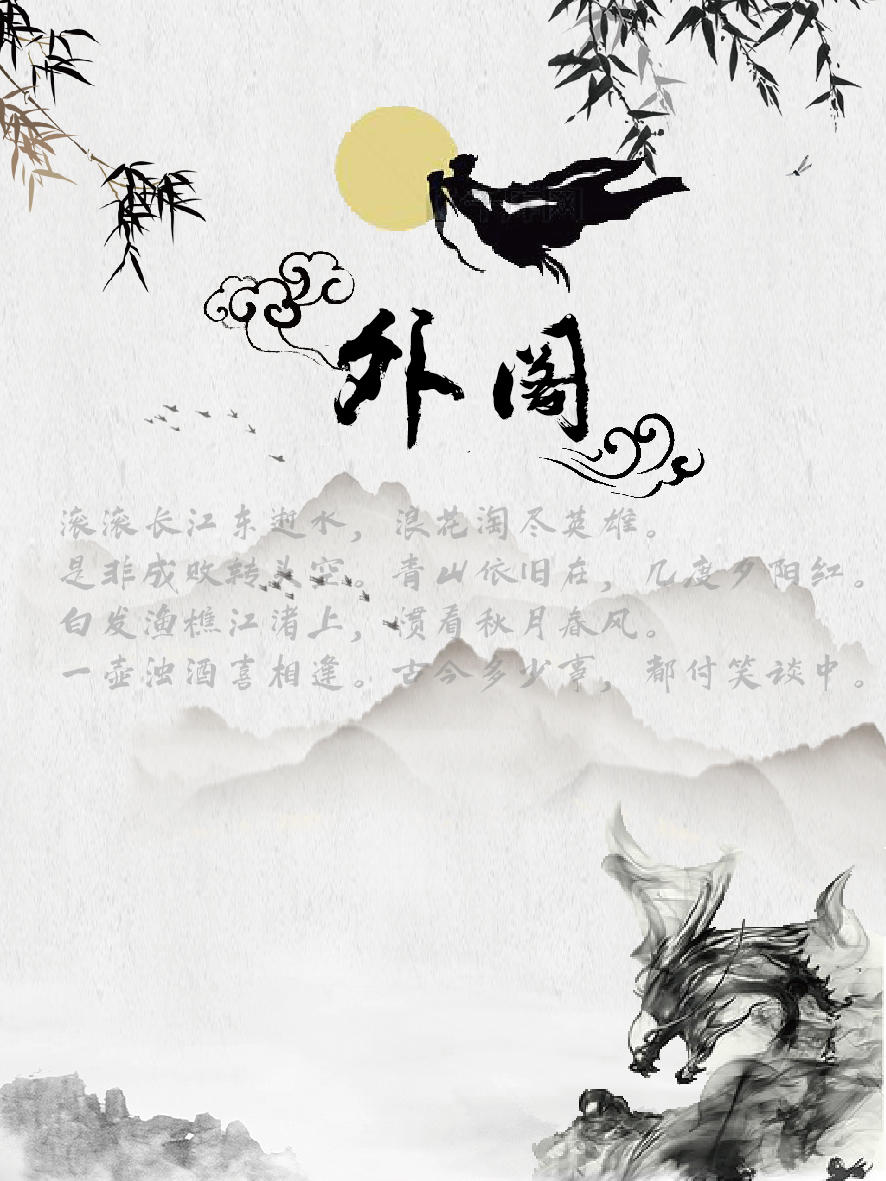 外阁
滚滚长江东逝水，浪花淘尽英雄。
是非成败转头空。青山依旧在，几度夕阳红。
白发渔樵江渚上，惯看秋月春风。
一壶浊酒喜相逢。古今多少事，都付笑谈中。